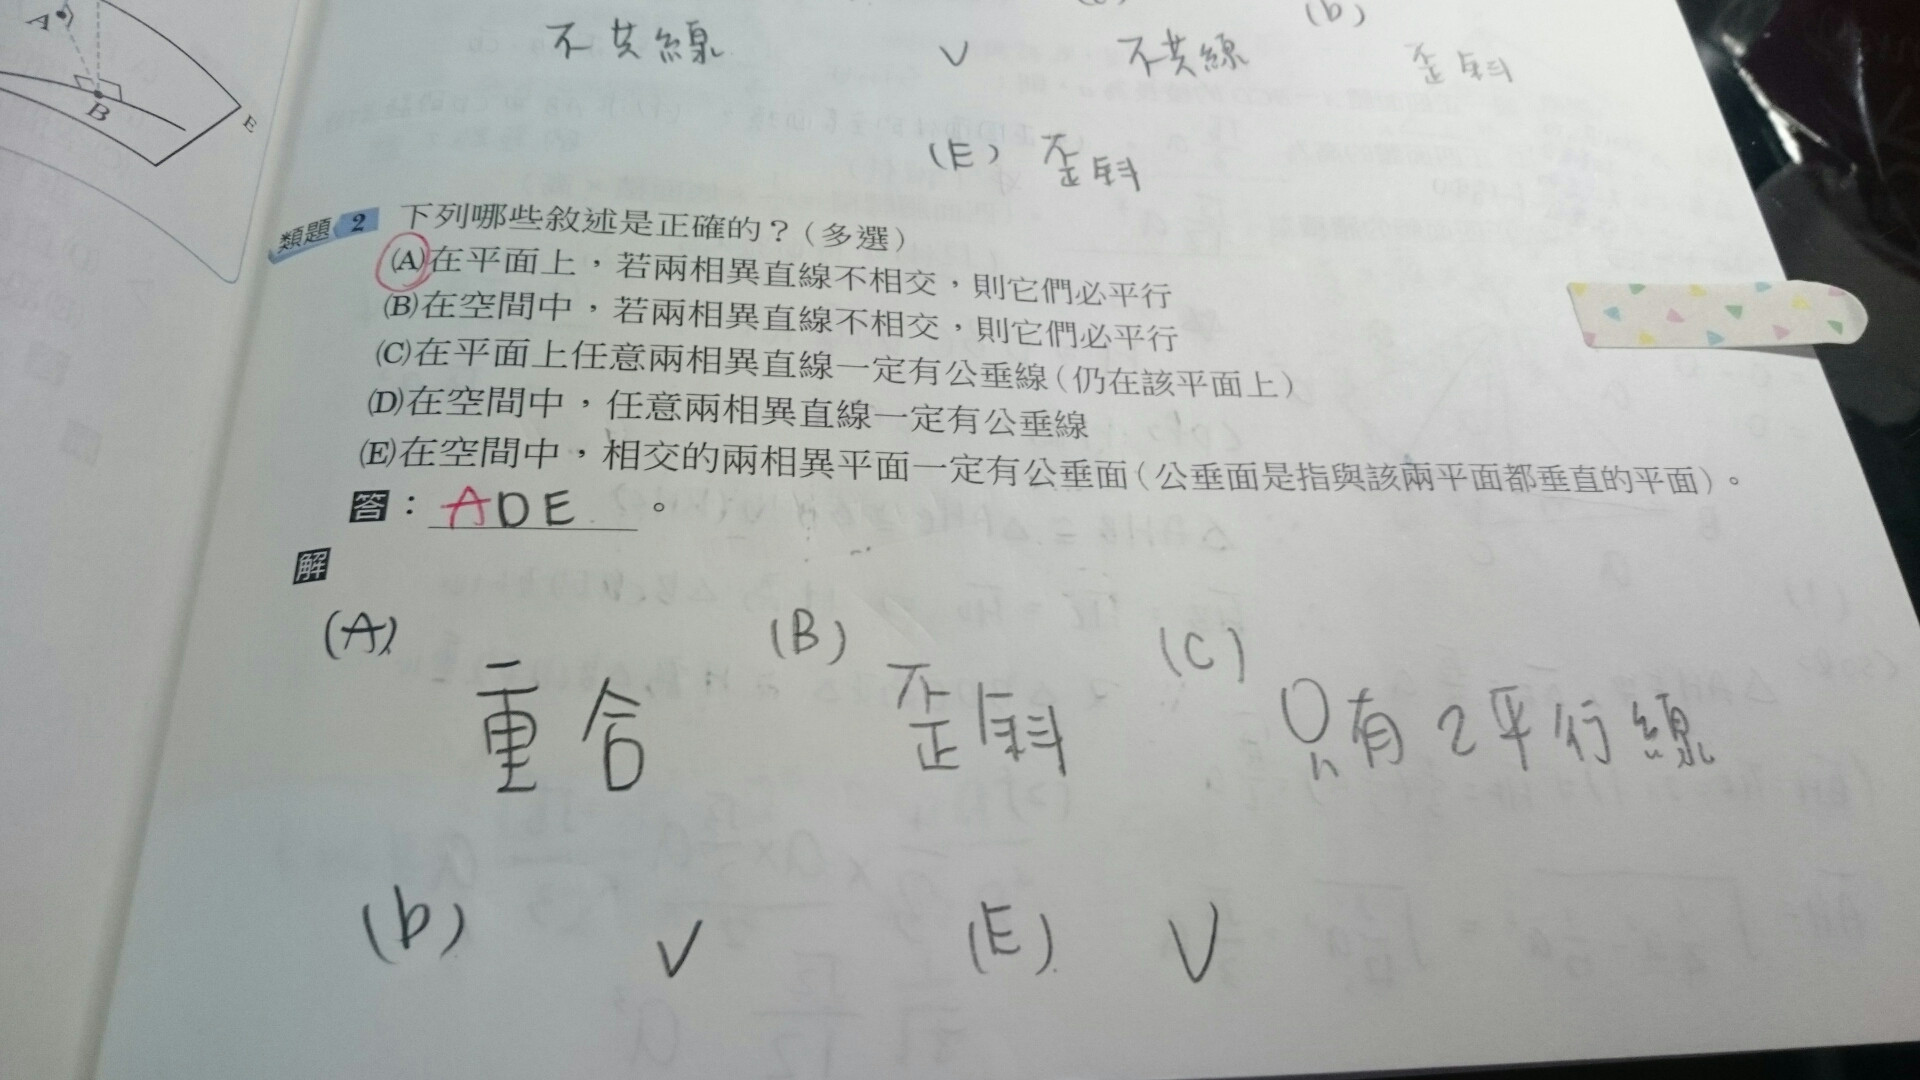 A
B
E
(b)
不共線
V
不共線
歪斜
(E) 歪斜
類題 2 下列哪些敘述是正確的？(多選)
(A)在平面上，若兩相異直線不相交，則它們必平行
(B)在空間中，若兩相異直線不相交，則它們必平行
(C)在平面上任意兩相異直線一定有公垂線(仍在該平面上)
(D)在空間中，任意兩相異直線一定有公垂線
(E)在空間中，相交的兩相異平面一定有公垂面(公垂面是指與該兩平面都垂直的平面)。
答：ADE。
解
(A) 重合
(B) 歪斜
(C) 只有2平行線
(b) V
(E) V